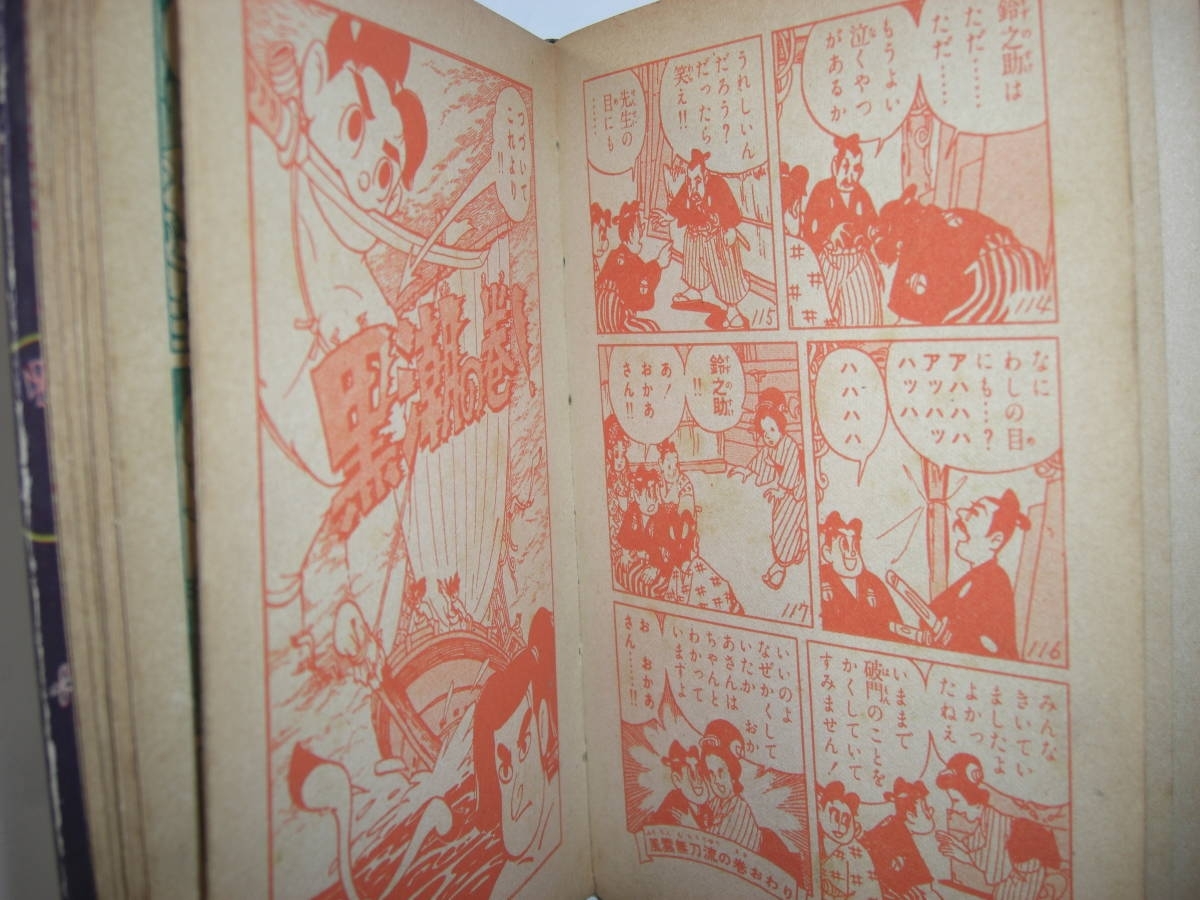 鈴之助は
ただ……
ただ……
もうよい
泣くやつ
があるか
114
うれしいん
だろう?
だったら
笑え!!
先生の
目にも
……
115
なに
わしの目
にも…?
アハハハ
アッハッ
ハッハ
ハハハハ
116
鈴之助
!!
あ!
おかあ
さん!!
117
みんな
きいてい
ましたよ
よかっ
たねえ
いままで
破門のことを
かくしていて
すみません!
いいのよ
なぜかくして
いたか おか
あさんは
ちゃんと
わかって
いますよ
お おかあ
さん……!!
風雲無刀流の巻おわり
つづいて
これより
!!
黒潮の巻